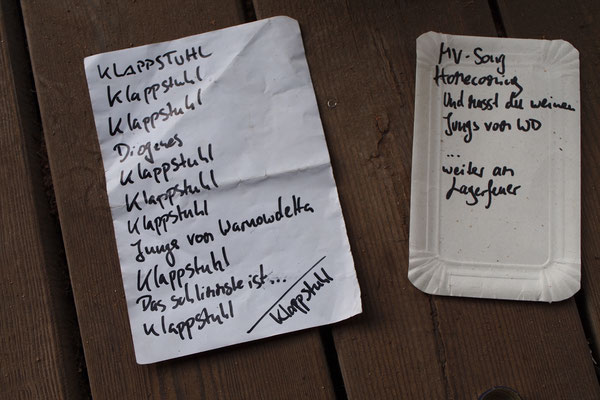 KLAPPSTUHL
Klappstuhl
Klappstuhl
Diogenes
Klappstuhl
Klappstuhl
Klappstuhl
Jungs vom Warnowdelta
Klappstuhl
Das schlimmste ist...
Klappstuhl
Klappstuhl
MV-Song
Homecoming
Und musst du weinen
Jungs vom WD
...
weiter am
Lagerfeuer